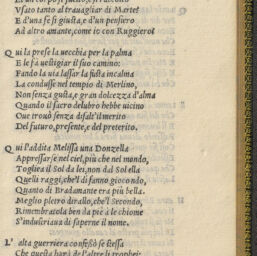 Vsato tanto al trauagliar di Marte?
E d'una fe si giusta, e d'un pensiero
Ad altro amante, come io con Ruggiero?
Qui la prese la vecchia per la palma
E le fà uestigiar il suo camino:
Fando la uia lassar la susta incalma
La condusse nel tempio di Merlino,
Non senza gusta, e gran dolcezza d'alma
Quando il sacro delubro hebbe uicino
Que trouò senza disfalt'il merito
Del futuro, presente, e del preterito.
Qui l'addita Melissa una Donzella
Appressarse nel ciel, più che nel mondo,
Togliea il Sol da lei, non dal Sol ella
Quelli raggi, che'l fanno giocondo,
Quanto di Bradamante era più bella.
Meglio pletro dirallo, che'l Secondo,
Rimembratola ben da piè a le chiome
S'industriaua di saperne il nome.
L'alta guerriera confessò se stessa